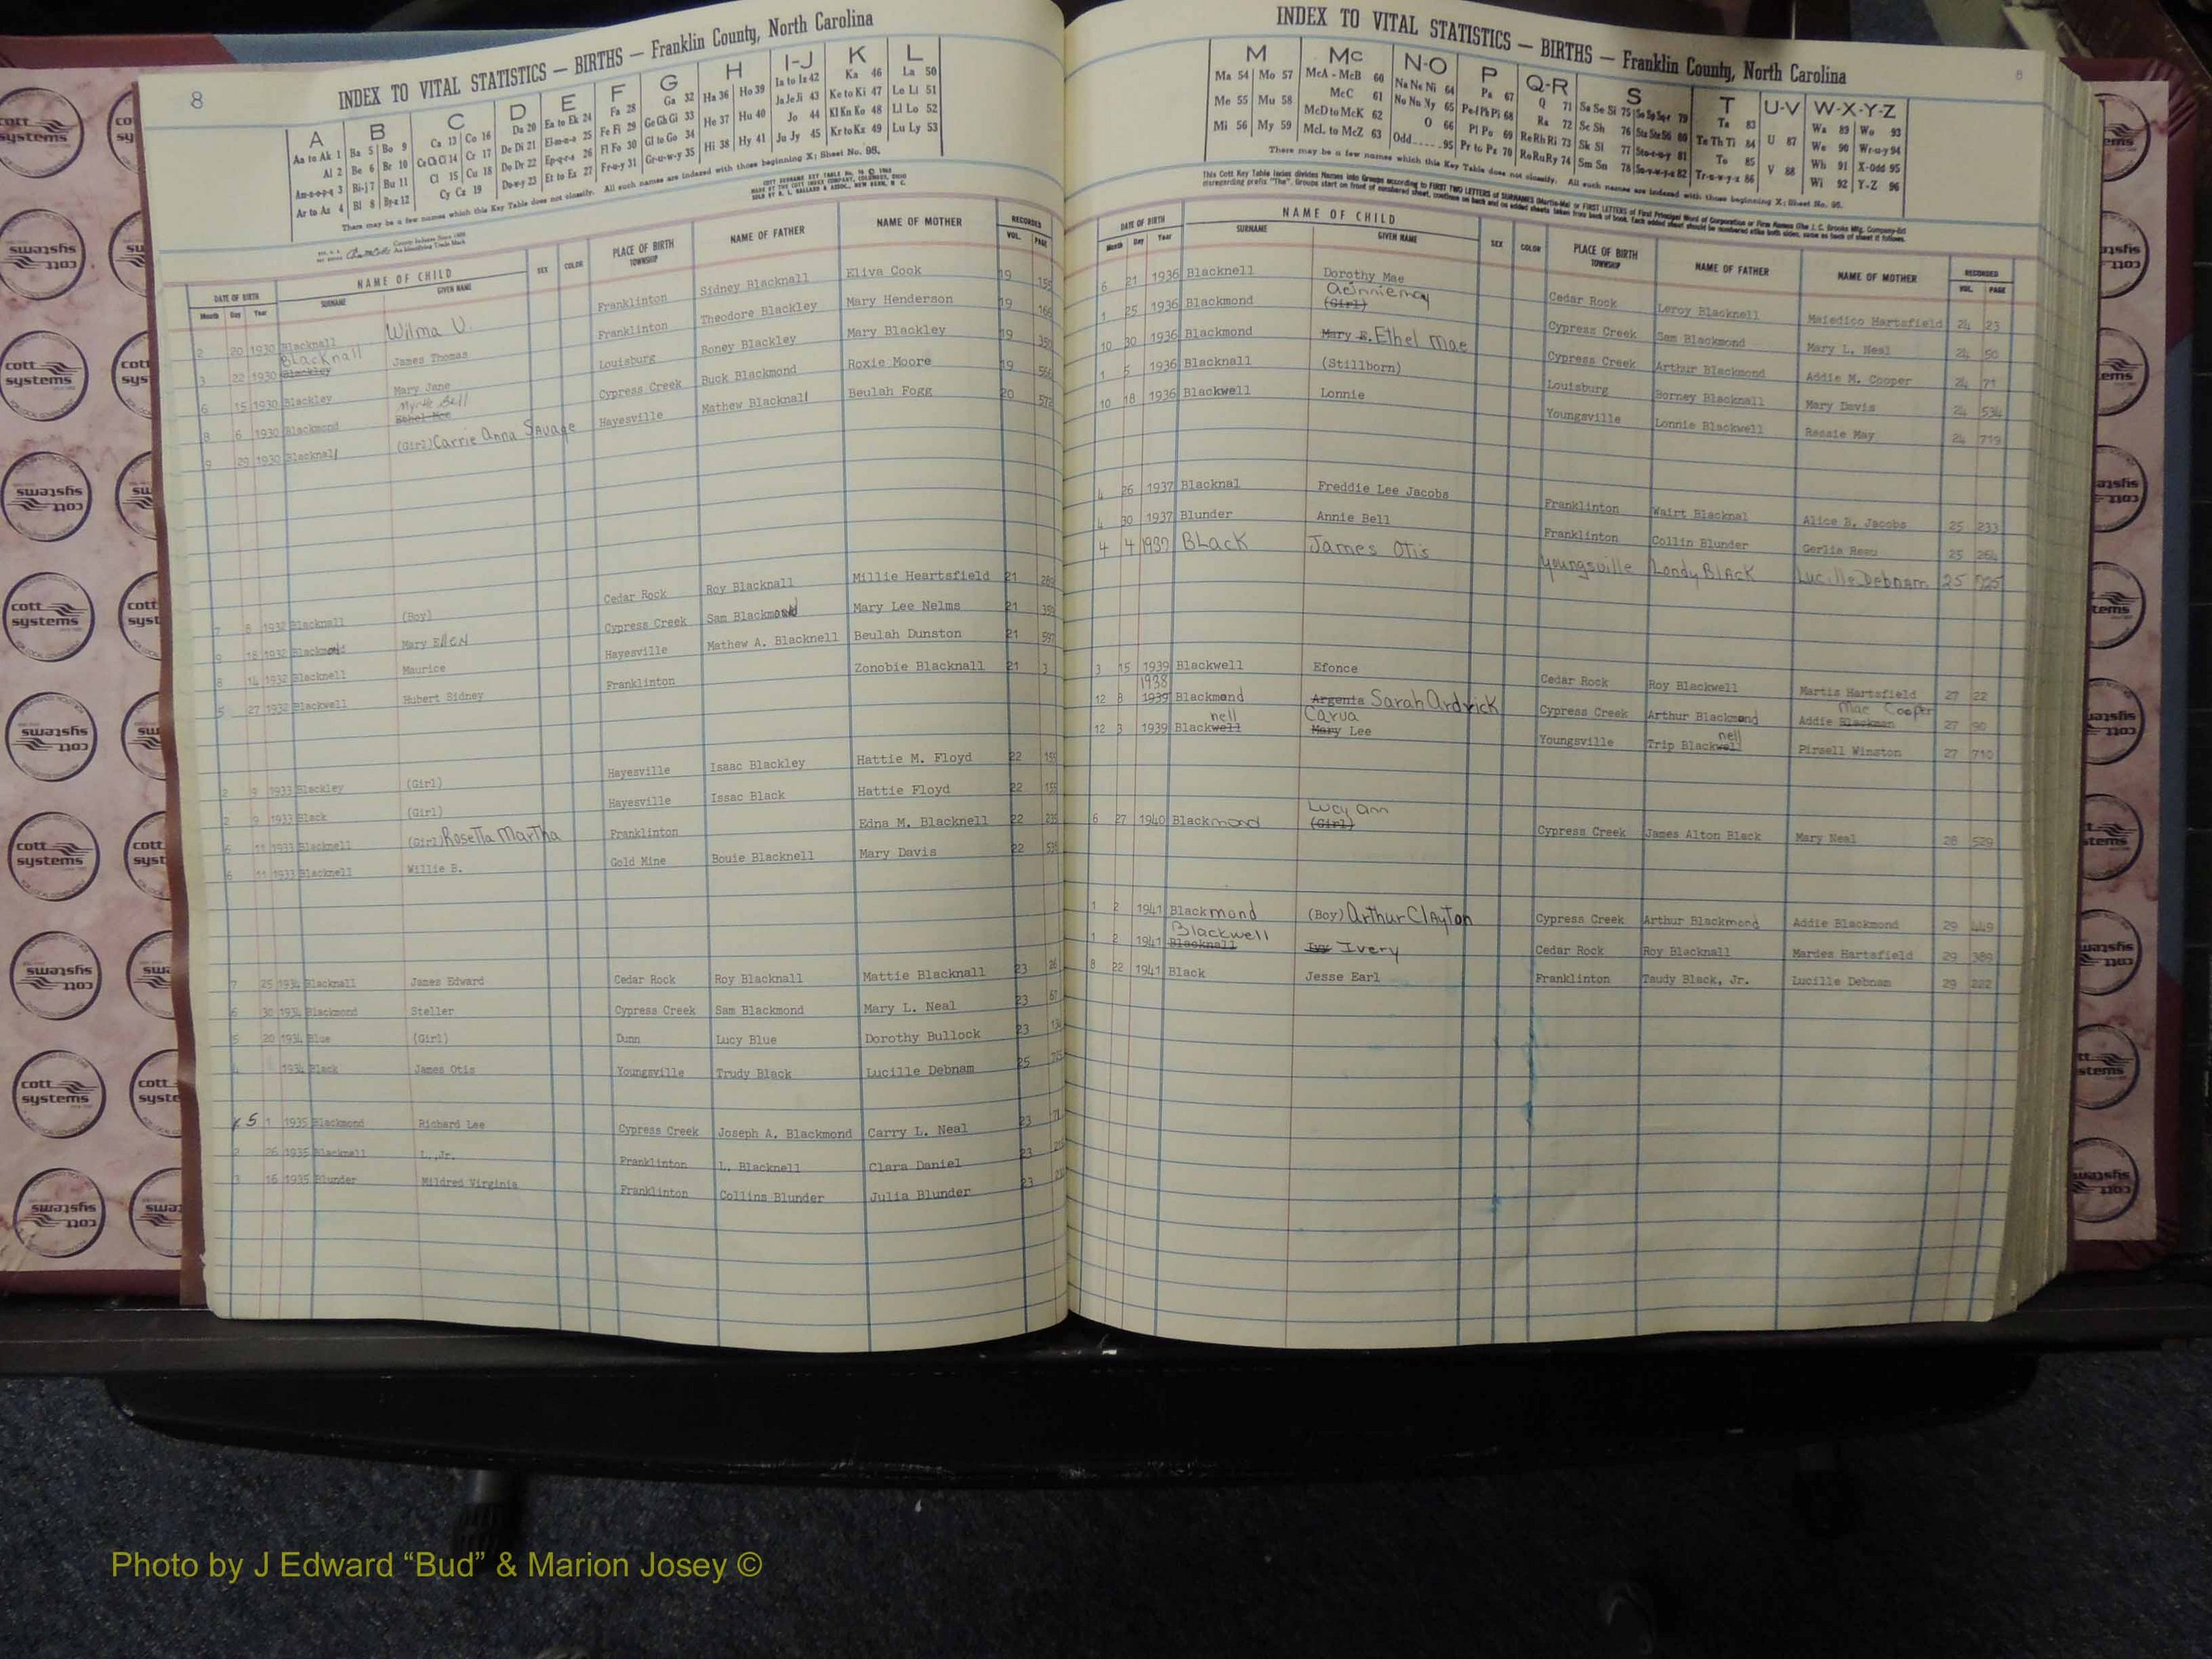 8
INDEX TO VITAL STATISTICS — BIRTHS — Franklin County, North Carolina
A B C D E F G H I-J K L
Aa to Ak 1 Ba 5 Bo 9 Ca 13 Co 16 Da 20 Ea to Ek 24 Fa 28 Ga 32 Ha 36 Ho 39 Ia to Iz 42 Ka 46 La 50
Al 2 Be 6 Br 10 Ce Ch Ci 14 Cr 17 De Di 21 El-m-n-o 25 Fe Fi 29 Ge Gh Gi 33 He 37 Hu 40 Ja Je Ji 43 Ke to Ki 47 Le Li 51
Am-n-o-p-q 3 Bi-j 7 Bu 11 Cl 15 Cu 18 Do Dr 22 Ep-q-r-s 26 Fl Fo 30 Gl to Go 34 Hi 38 Hy 41 Jo 44 Kl Kn Ko 48 Ll Lo 52
Ar to Az 4 Bl 8 By-z 12 Cy Cz 19 Du-w-y 23 Et to Ez 27 Fr-u-y 31 Gr-u-w-y 35 Ju Jy 45 Kr to Kz 49 Lu Ly 53
There may be a few names which this Key Table does not classify. All such names are indexed with those beginning X; Sheet No. 95.
DATE OF BIRTH NAME OF CHILD SEX COLOR PLACE OF BIRTH NAME OF FATHER NAME OF MOTHER RECORDED
Month Day Year SURNAME GIVEN NAME TOWNSHIP VOL. PAGE
2 20 1930 Blacknall Wilma V. Franklinton Sidney Blacknall Eliva Cook 19 155
Blacknall
3 22 1930 Blackley James Thomas Franklinton Theodore Blackley Mary Henderson 19 166
6 15 1930 Blackley Mary Jane Louisburg Boney Blackley Mary Blackley 19 350
Myrtle Bell
8 6 1930 Blackmond Ethel Mae Cypress Creek Buck Blackmond Roxie Moore 19 566
9 29 1930 Blacknall (Girl) Carrie Anna Savage Hayesville Mathew Blacknall Beulah Fogg 20 572
7 8 1932 Blacknall (Boy) Cedar Rock Roy Blacknall Millie Heartsfield 21 289
9 18 1932 Blackmond Mary Ellen Cypress Creek Sam Blackmond Mary Lee Nelms 21 359
8 14 1932 Blacknell Maurice Hayesville Mathew A. Blacknell Beulah Dunston 21 597
5 27 1932 Blackwell Hubert Sidney Franklinton Zonobie Blacknall 21 3
2 9 1933 Blackley (Girl) Hayesville Isaac Blackley Hattie M. Floyd 22 155
2 9 1933 Black (Girl) Hayesville Issac Black Hattie Floyd 22 155
6 11 1933 Blacknell (Girl) Rosetta Martha Franklinton Edna M. Blacknell 22 235
6 11 1933 Blacknell Willie B. Gold Mine Bouie Blacknell Mary Davis 22 535
7 25 1934 Blacknall James Edward Cedar Rock Roy Blacknall Mattie Blacknall 23 26
6 30 1934 Blackmond Steller Cypress Creek Sam Blackmond Mary L. Neal 23 67
5 20 1934 Blue (Girl) Dunn Lucy Blue Dorothy Bullock 23 134
4 1934 Black James Otis Youngsville Trudy Black Lucille Debnam 25 725
5 1 1935 Blackmond Richard Lee Cypress Creek Joseph A. Blackmond Carry L. Neal 23 71
2 26 1935 Blacknell L. Jr. Franklinton L. Blacknell Clara Daniel 23
3 16 1935 Blunder Mildred Virginia Franklinton Collins Blunder Julia Blunder 23
8
INDEX TO VITAL STATISTICS — BIRTHS — Franklin County, North Carolina
M Mc N-O P Q-R S T U-V W-X-Y-Z
Ma 54 Mo 57 McA - McB 60 Na Ne Ni 64 Pa 67 Q 71 Sa Se Si 75 So Sp Sq-r 79 Ta 83 U 87 Wa 89 Wo 93
Me 55 Mu 58 McC 61 No Nu Ny 65 Pe-f Ph Pi 68 Ra 72 Sc Sh 76 Sta Ste Sti 80 Te Th Ti 84 V 88 We 90 Wr-u-y 94
Mi 56 My 59 McD to McK 62 O 66 Pl Po 69 Re Rh Ri 73 Sk Sl 77 Sto-r-u-y 81 To 85 Wh 91 X-Odd 95
McL to McZ 63 Odd.....95 Pr to Pz 70 Ro Ru Ry 74 Sm Sn 78 Su-v-w-y-z 82 Tr-u-w-y-z 86 Wi 92 Y-Z 96
There may be a few names which this Key Table does not classify. All such names are indexed with those beginning X; Sheet No. 95.
DATE OF BIRTH NAME OF CHILD SEX COLOR PLACE OF BIRTH NAME OF FATHER NAME OF MOTHER RECORDED
Month Day Year SURNAME GIVEN NAME TOWNSHIP VOL. PAGE
6 21 1936 Blacknell Dorothy Mae Cedar Rock Leroy Blacknell Maiedico Hartsfield 24 23
1 25 1936 Blackmond (Girl) Cypress Creek Sam Blackmond Mary L. Neal 24 50
10 30 1936 Blackmond Mary E. Ethel Mae Cypress Creek Arthur Blackmond Addie M. Cooper 24 71
1 5 1936 Blacknall (Stillborn) Louisburg Borney Blacknell Mary Davis 24 534
10 18 1936 Blackwell Lonnie Youngsville Lonnie Blackwell Ressie May 24 719
4 26 1937 Blacknal Freddie Lee Jacobs Franklinton Wairt Blacknal Alice B. Jacobs 25 233
4 30 1937 Blunder Annie Bell Franklinton Collin Blunder Gerlia Beau 25 264
4 4 1937 Black James Otis Youngsville Londy Black Lucille Debnam 25 725
3 15 1939 Blackwell Efonce Cedar Rock Roy Blackwell Martis Hartsfield 27 22
1938 Mae Cooper
12 8 1939 Blackmond Argenta Sarah Ardrick Cypress Creek Arthur Blackmond Addie Blackmon 27 90
nell Carva nell
12 3 1939 Blackwell Mary Lee Youngsville Trip Blackwell Pirsell Winston 27 710
Lucy Ann
6 27 1940 Blackmond (Girl) Cypress Creek James Alton Black Mary Neal 28 529
1 2 1941 Blackmond (Boy) Arthur Clayton Cypress Creek Arthur Blackmond Addie Blackmond 29 449
Blackwell
1 2 1941 Blacknall Ivy Ivery Cedar Rock Roy Blacknall Mardes Hartsfield 29 389
8 22 1941 Black Jesse Earl Franklinton Taudy Black, Jr. Lucille Debnam 29 222
cott systems
Photo by J Edward “Bud” & Marion Josey ©